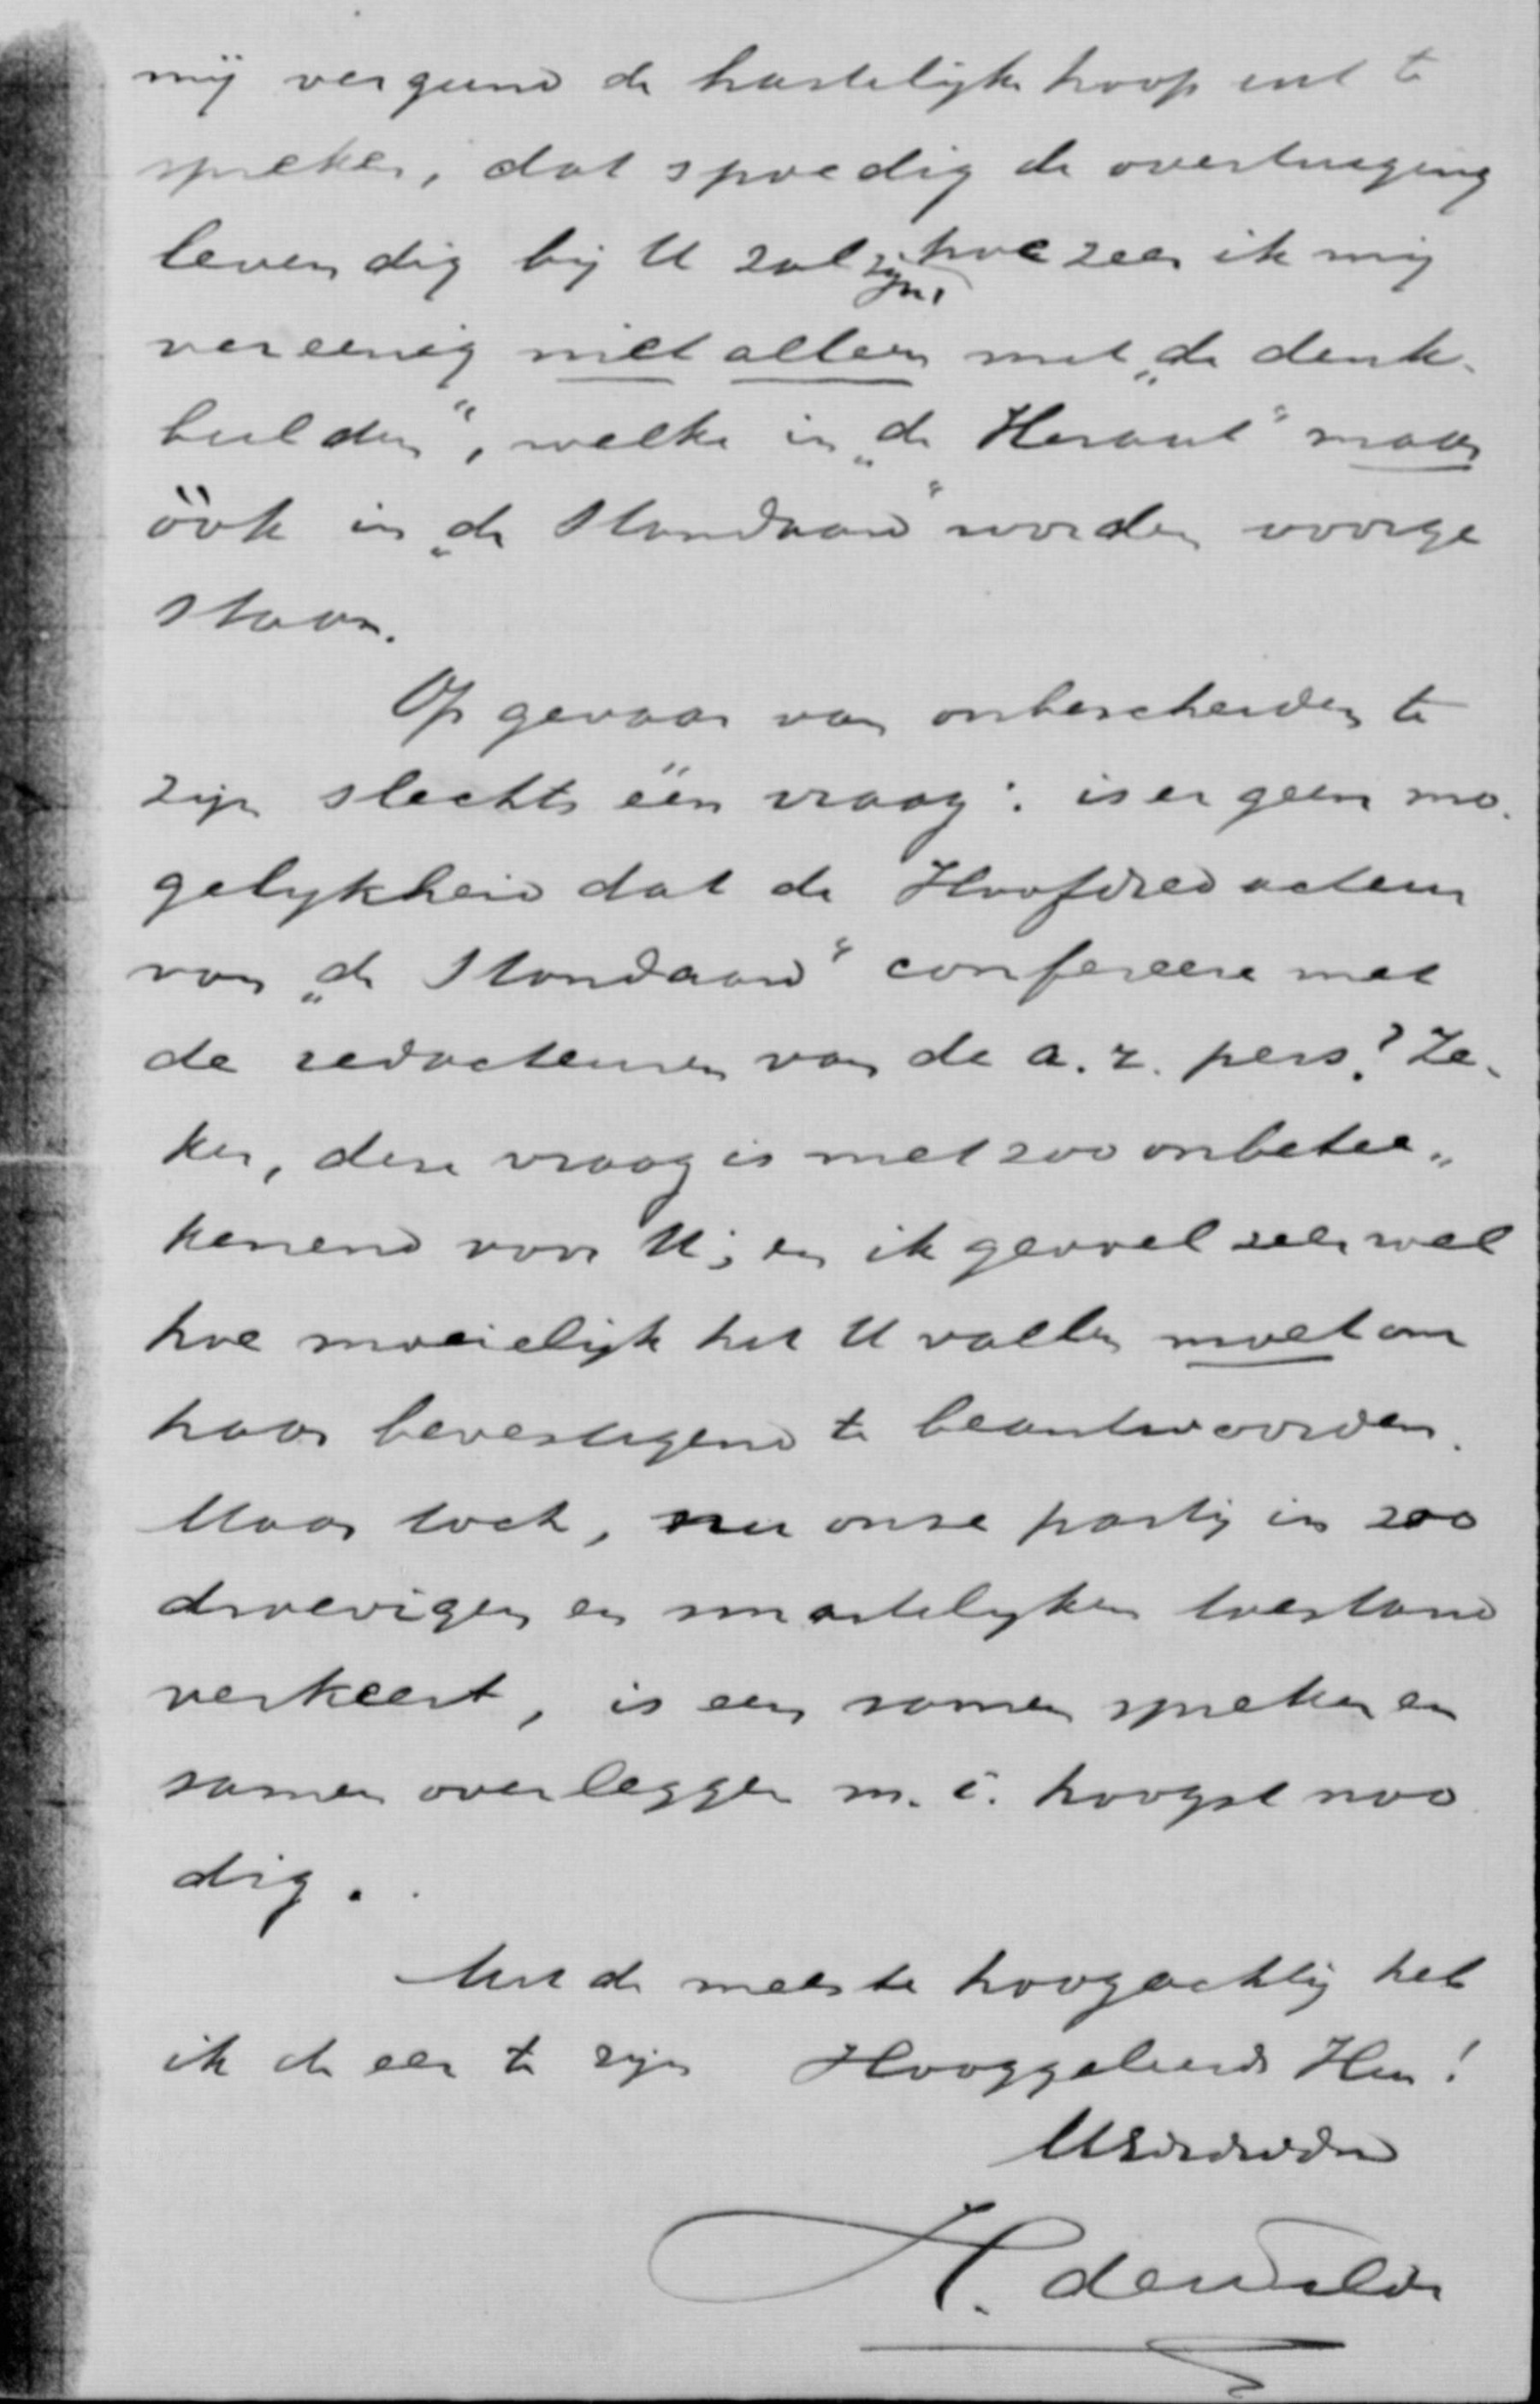 mij vergund de hartelijke hoop uit te
spreken, dat spoedig de overtuiging
levendig bij U zal zijn, hoezeer ik mij
vereenig niet alleen met „de denk-
beelden“, welke in „de Heraut“ maar
óók in „de Standaard“ worden voorge
staan.
Op gevaar van onbescheiden te
zijn slechts één vraag: is er geen mo-
gelijkheid dat de Hoofdredacteur
van „de Standaard“ confereere met
de redacteuren van de a. r. pers? Ze-
ker, deze vraag is niet zoo onbetee„
kenend voor U; en ik gevoel zeer wel
hoe moeielijk het U vallen moet om
haar bevestigend te beantwoorden.
Maar toch, nu onze partij in zoo
droevigen en smartelijken toestand
verkeert, is een samen spreken en
samen overleggen m. i. hoogst noo
dig.
Met de meeste hoogachting heb
ik de eer te zijn Hooggeleerde Heer!
UEdDwDn
H. de Wilde